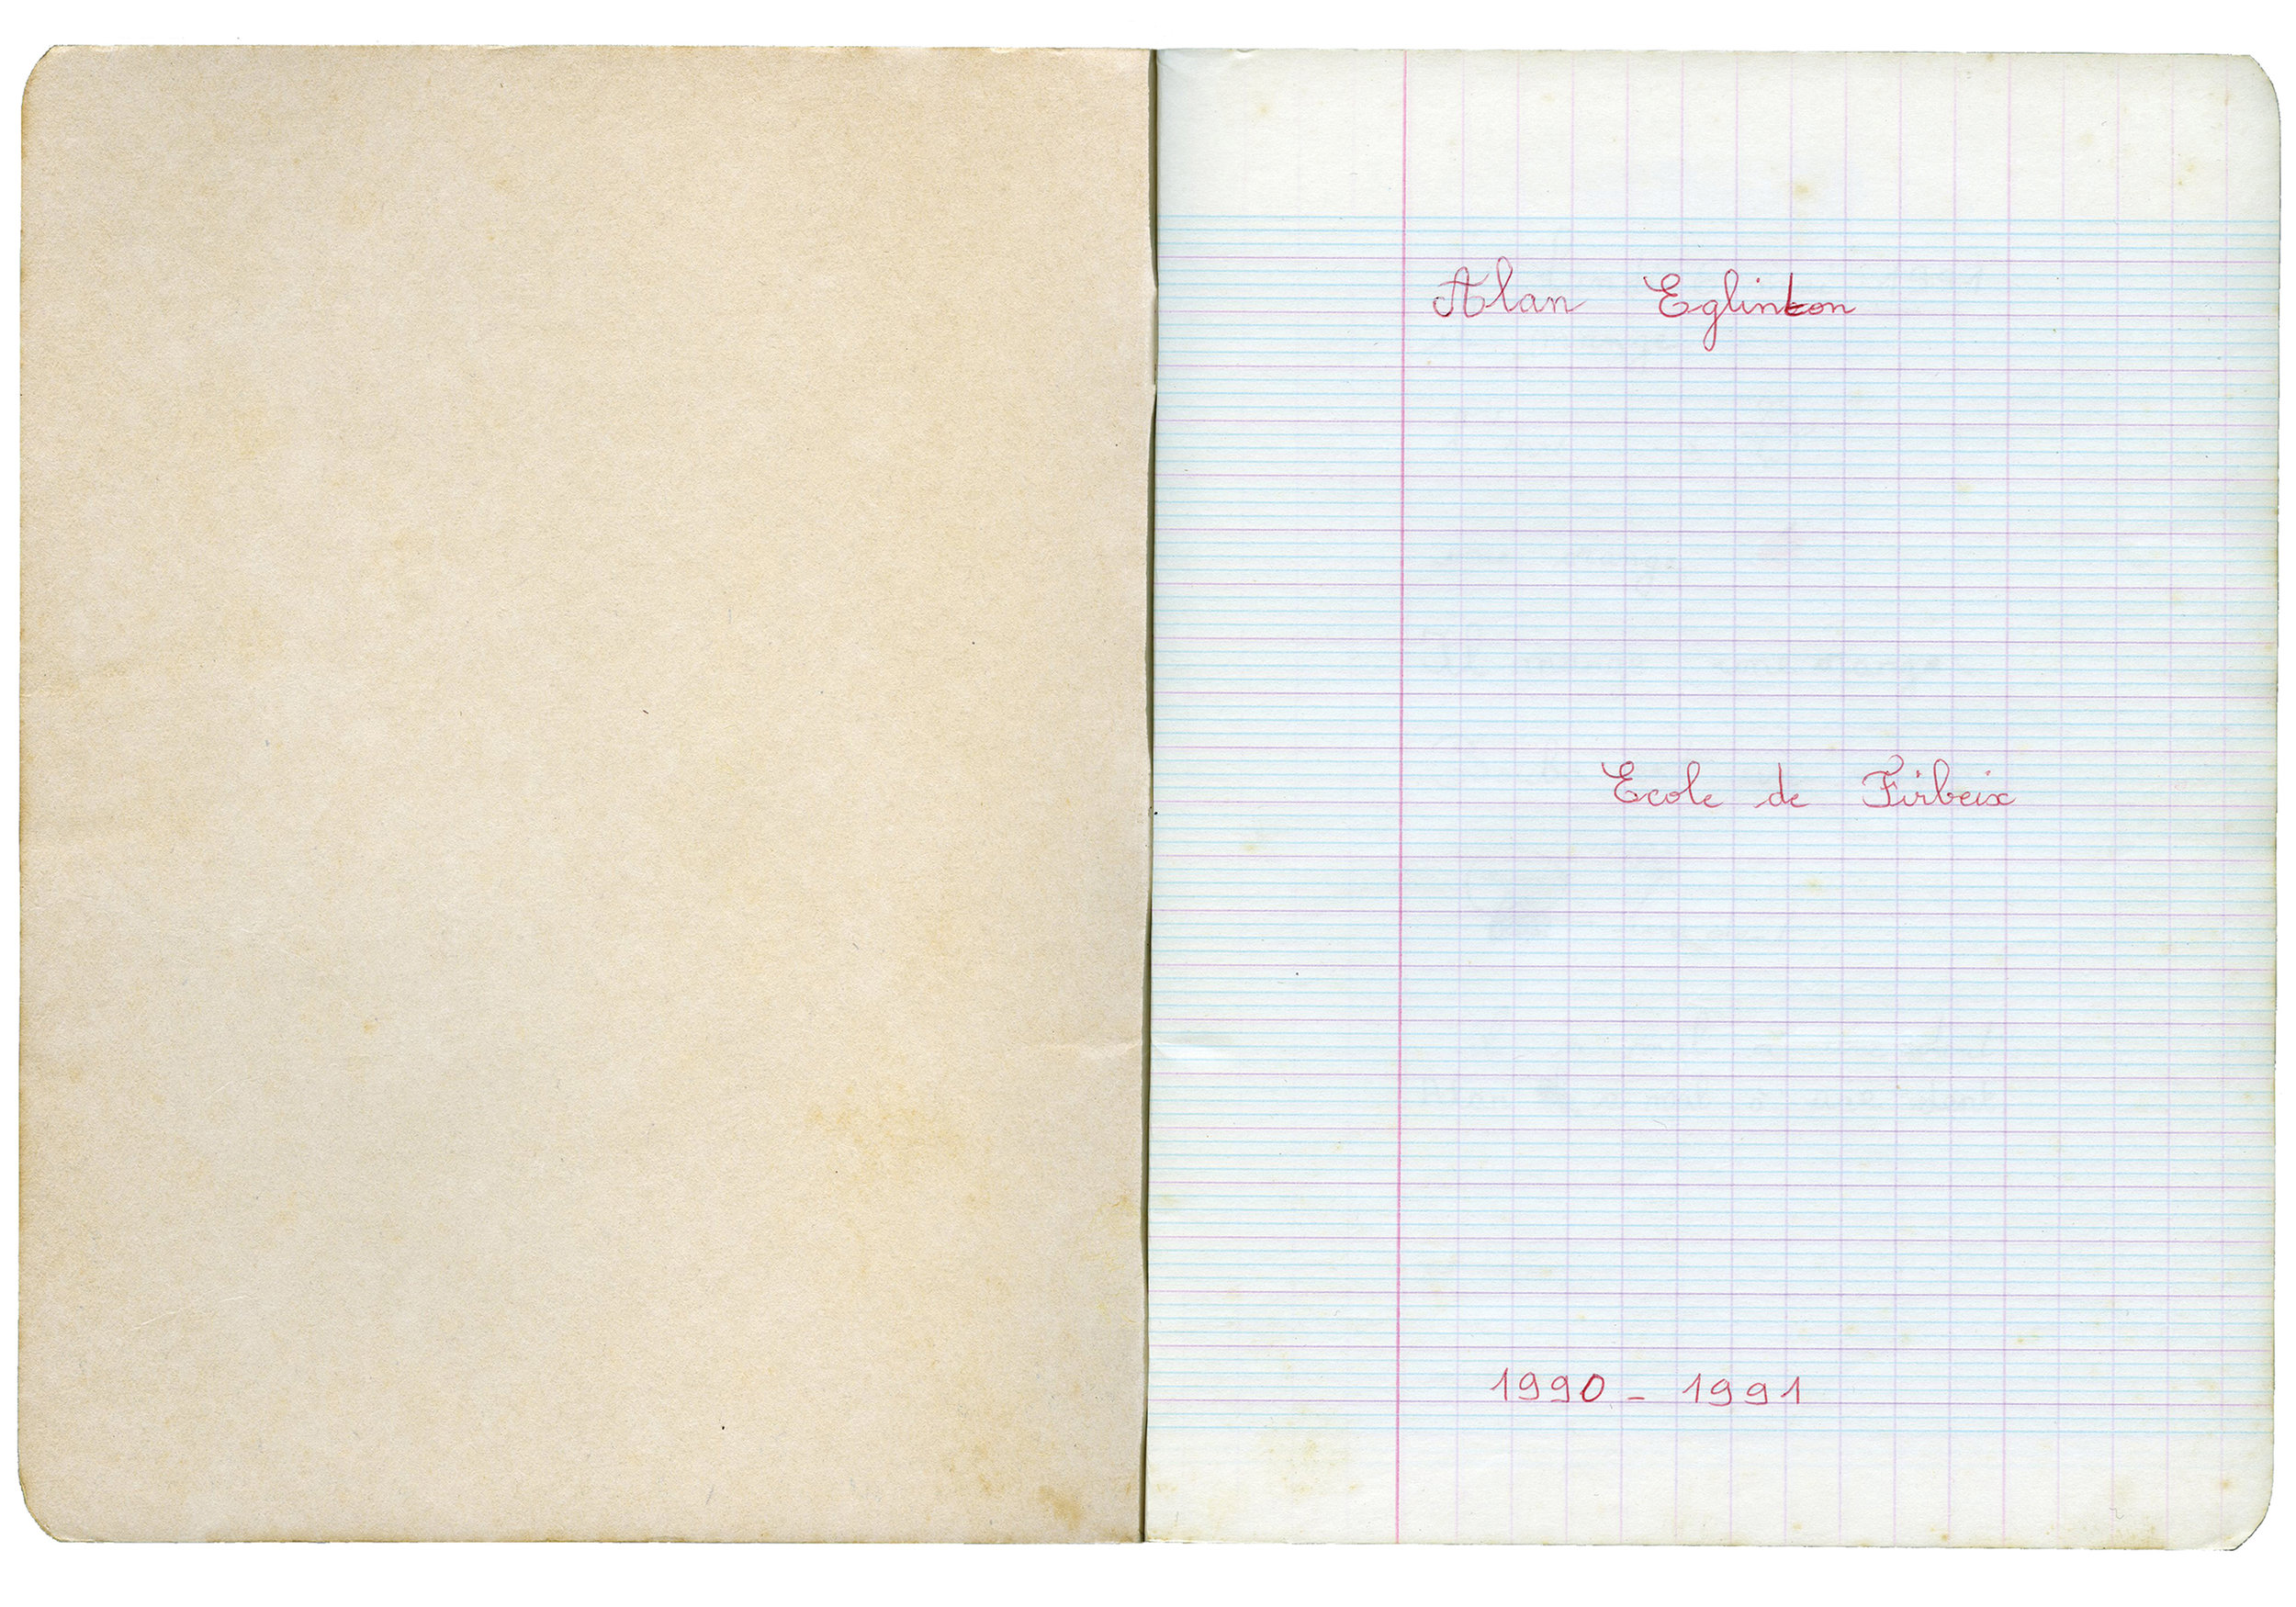 Alan Eglinton
Ecole de Firbeix
1990 - 1991